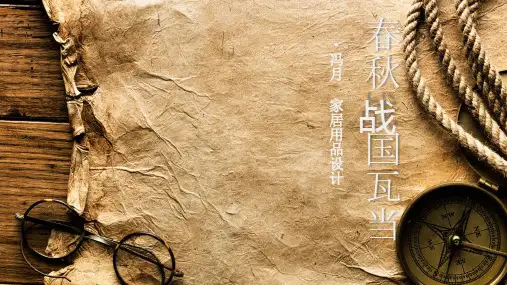 春秋战国瓦当
· 冯月 家居用品设计